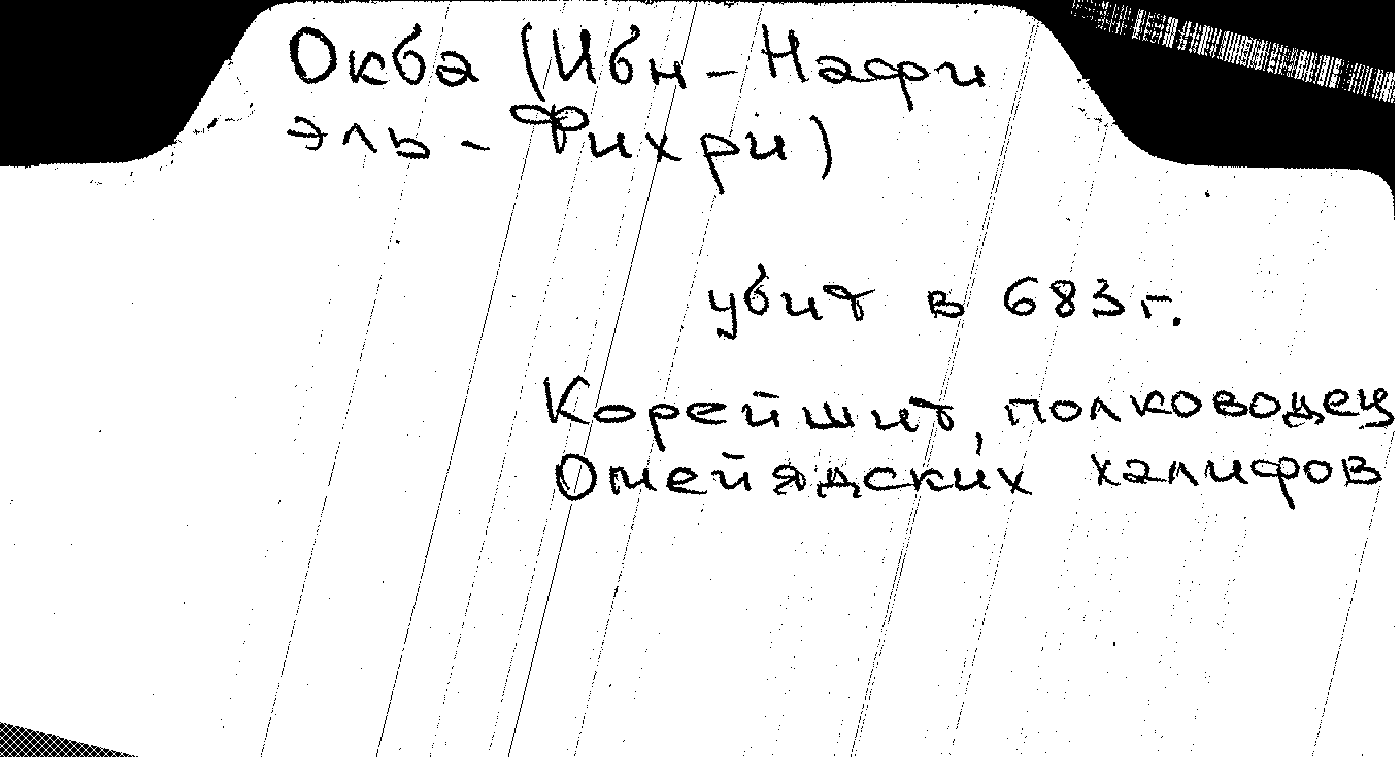 Окба (Ибн-Нафи
эль-Фихри)
убит в 683 г.
Корейшит, полководец
Омейядских халифов